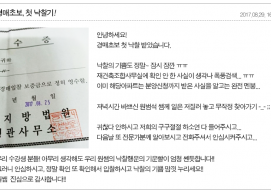 경매초보, 첫 낙찰기!
2017.08.29. 16
안녕하세요!
경매초보, 첫 낙찰 받았습니다.
낙찰의 기쁨도 정말~ 잠시 잠깐 ㅠㅠ
재건축조합사무실에 확인 안 한 사실이 생각나 폭풍검색... ㅠㅠ
이미 해당아파트는 분양신청까지 받은 사실을 알고는 완전 멘붕...
저녁시간 바쁘신 원범석 쌤께 일은 저질러 놓고 무작정 찾아가기 -_-;;
귀찮다 안하시고 저희의 구구절절 하소연 다 들어주시고...
다음날 또 전문가분께 알아보시고 전화주셔서 안심시켜주시고...
우리 수강생 분들! 아무리 생각해도 우리 원쌤의 낙찰행운의 기운빨이 엄청 쎈듯합니다!
안심하시고, 정말 확인 또 확인해서 입찰하시고 낙찰의 기쁨 맘껏 누리세요!
진심으로 감사합니다!
수 증
보증금으로 정히 영수함.
월 일
2017. 08. 25
지 방 법 원
관사무소